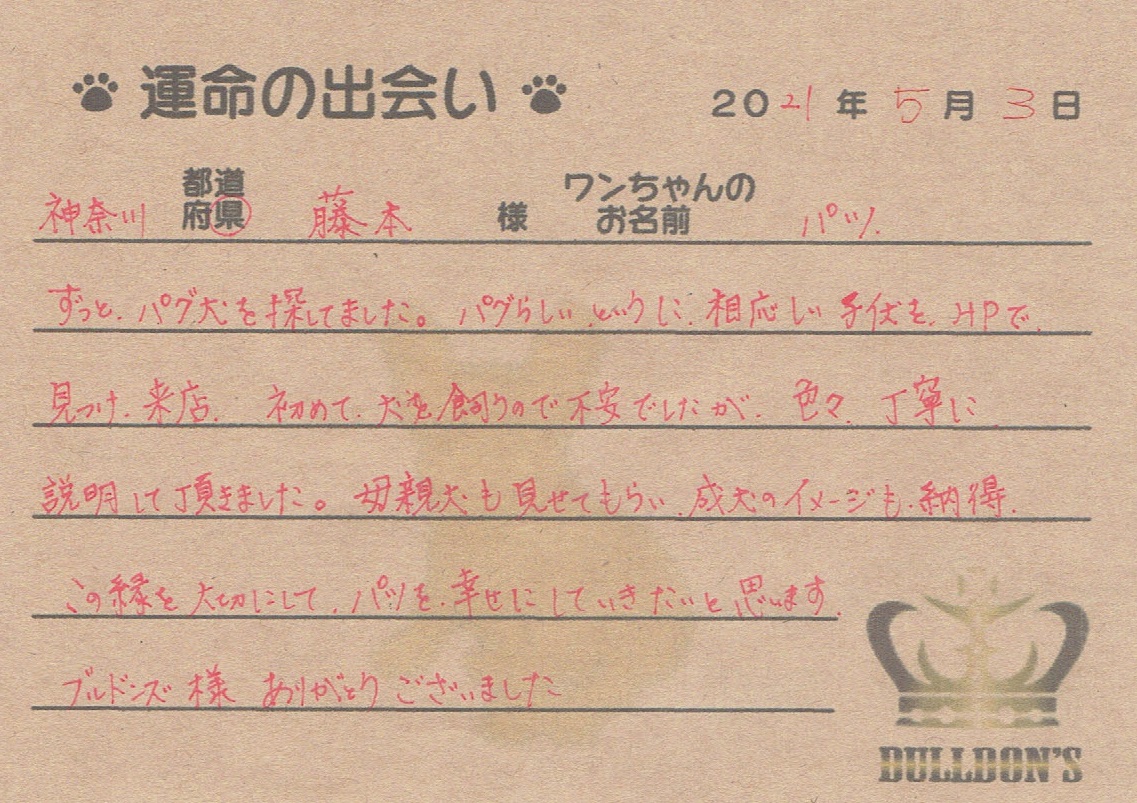 運命の出会い 2021年5月3日
神奈川 都道府県 藤本 様 ワンちゃんのお名前 パツ
ずっと、パグ犬を探してました。パグらしい、というに、相応しい子伏を、HPで、
見つけ、来店、初めて、犬を飼うので不安でしたが、色々、丁寧に
説明して頂きました。母親犬も見せてもらい、成犬のイメージも、納得、
この縁を大切にして、パツを、幸せにしていきたいと思います、
ブルドンズ様 ありがとうございました
BULLDON'S